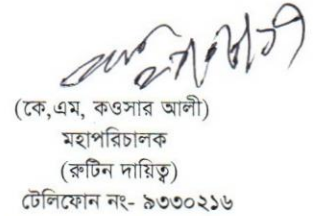 (কে,এম, কওসার আলী)
মহাপরিচালক
(রুটিন দায়িত্ব)
টেলিফোন নং- ৯৩৩০২১৬